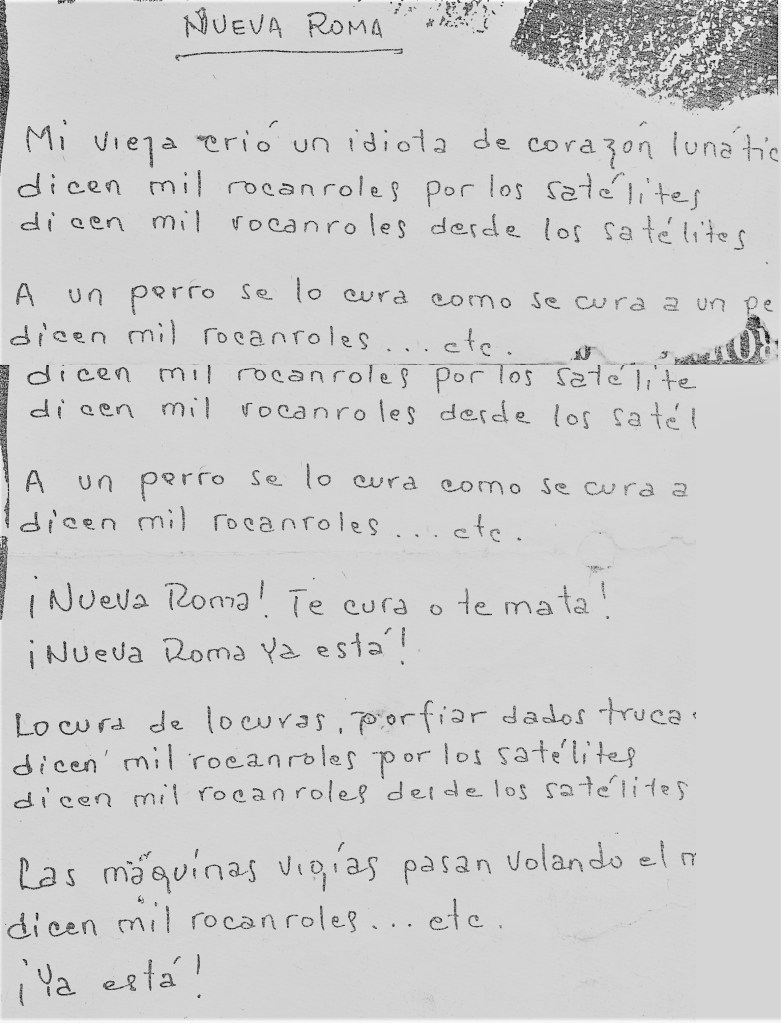 NUEVA ROMA
Mi vieja crió un idiota de corazón lunátic
dicen mil rocanroles por los satélites
dicen mil rocanroles desde los satélites
A un perro se lo cura como se cura a un pe
dicen mil rocanroles... etc.
dicen mil rocanroles por los satélite
dicen mil rocanroles desde los satél
A un perro se lo cura como se cura a
dicen mil rocanroles... etc.
¡Nueva Roma! Te cura o te mata!
¡Nueva Roma Ya está!
Locura de locuras, porfiar dados truca
dicen mil rocanroles por los satélites
dicen mil rocanroles desde los satélites
Las máquinas vigías pasan volando el
dicen mil rocanroles... etc.
¡Ya está!